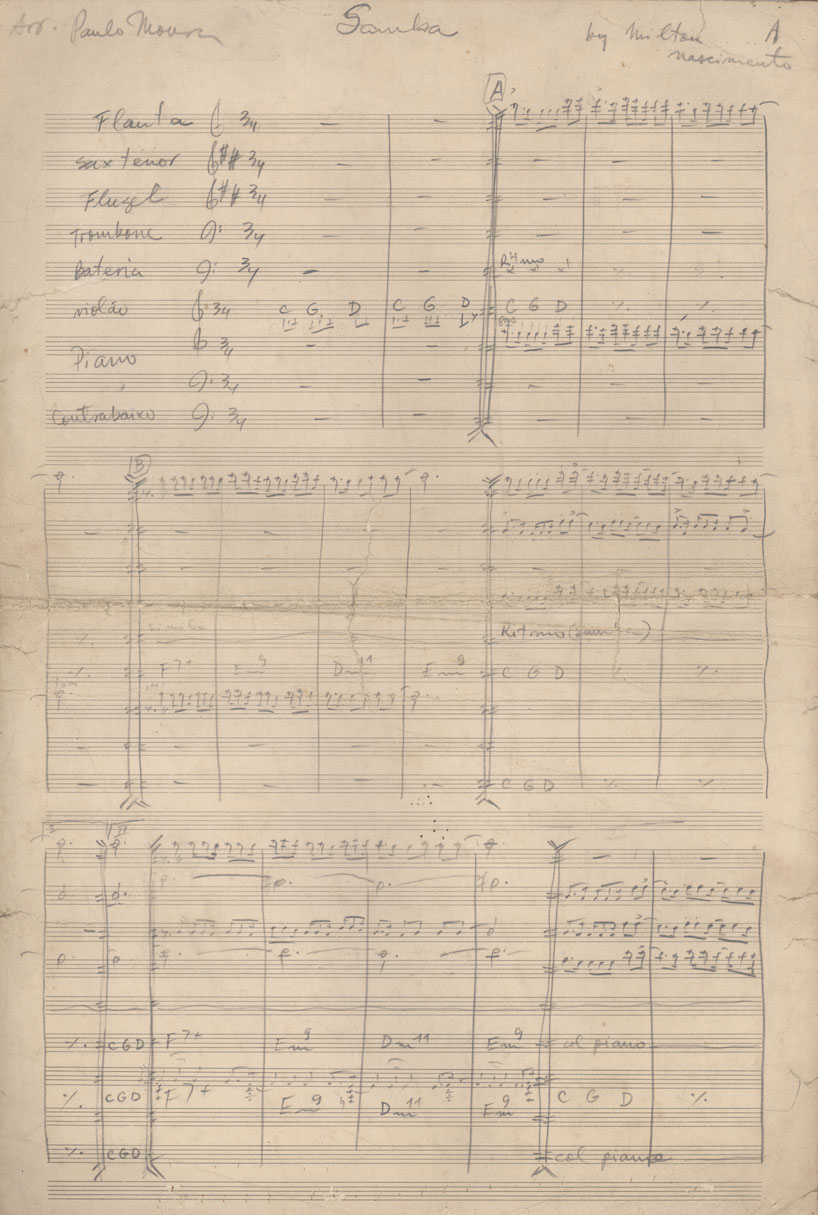 Arr. Paulo Moura Samba by Milton Nascimento A
A
Flauta 3/4
sax tenor 3/4
Flugel 3/4
Trombone 3/4
Bateria 3/4 Ritmo
violão 3/4 C G D C G D C G D
Piano 3/4
3/4
Contrabaixo 3/4
B
simile Ritmo (samba)
F7+ Em9 Dm11 Em9 C G D
C G D
I II
CGD F7+ Em9 Dm11 Em9 col piano
CGD F7+ Em9 Dm11 Em9 C G D
CGD col piano